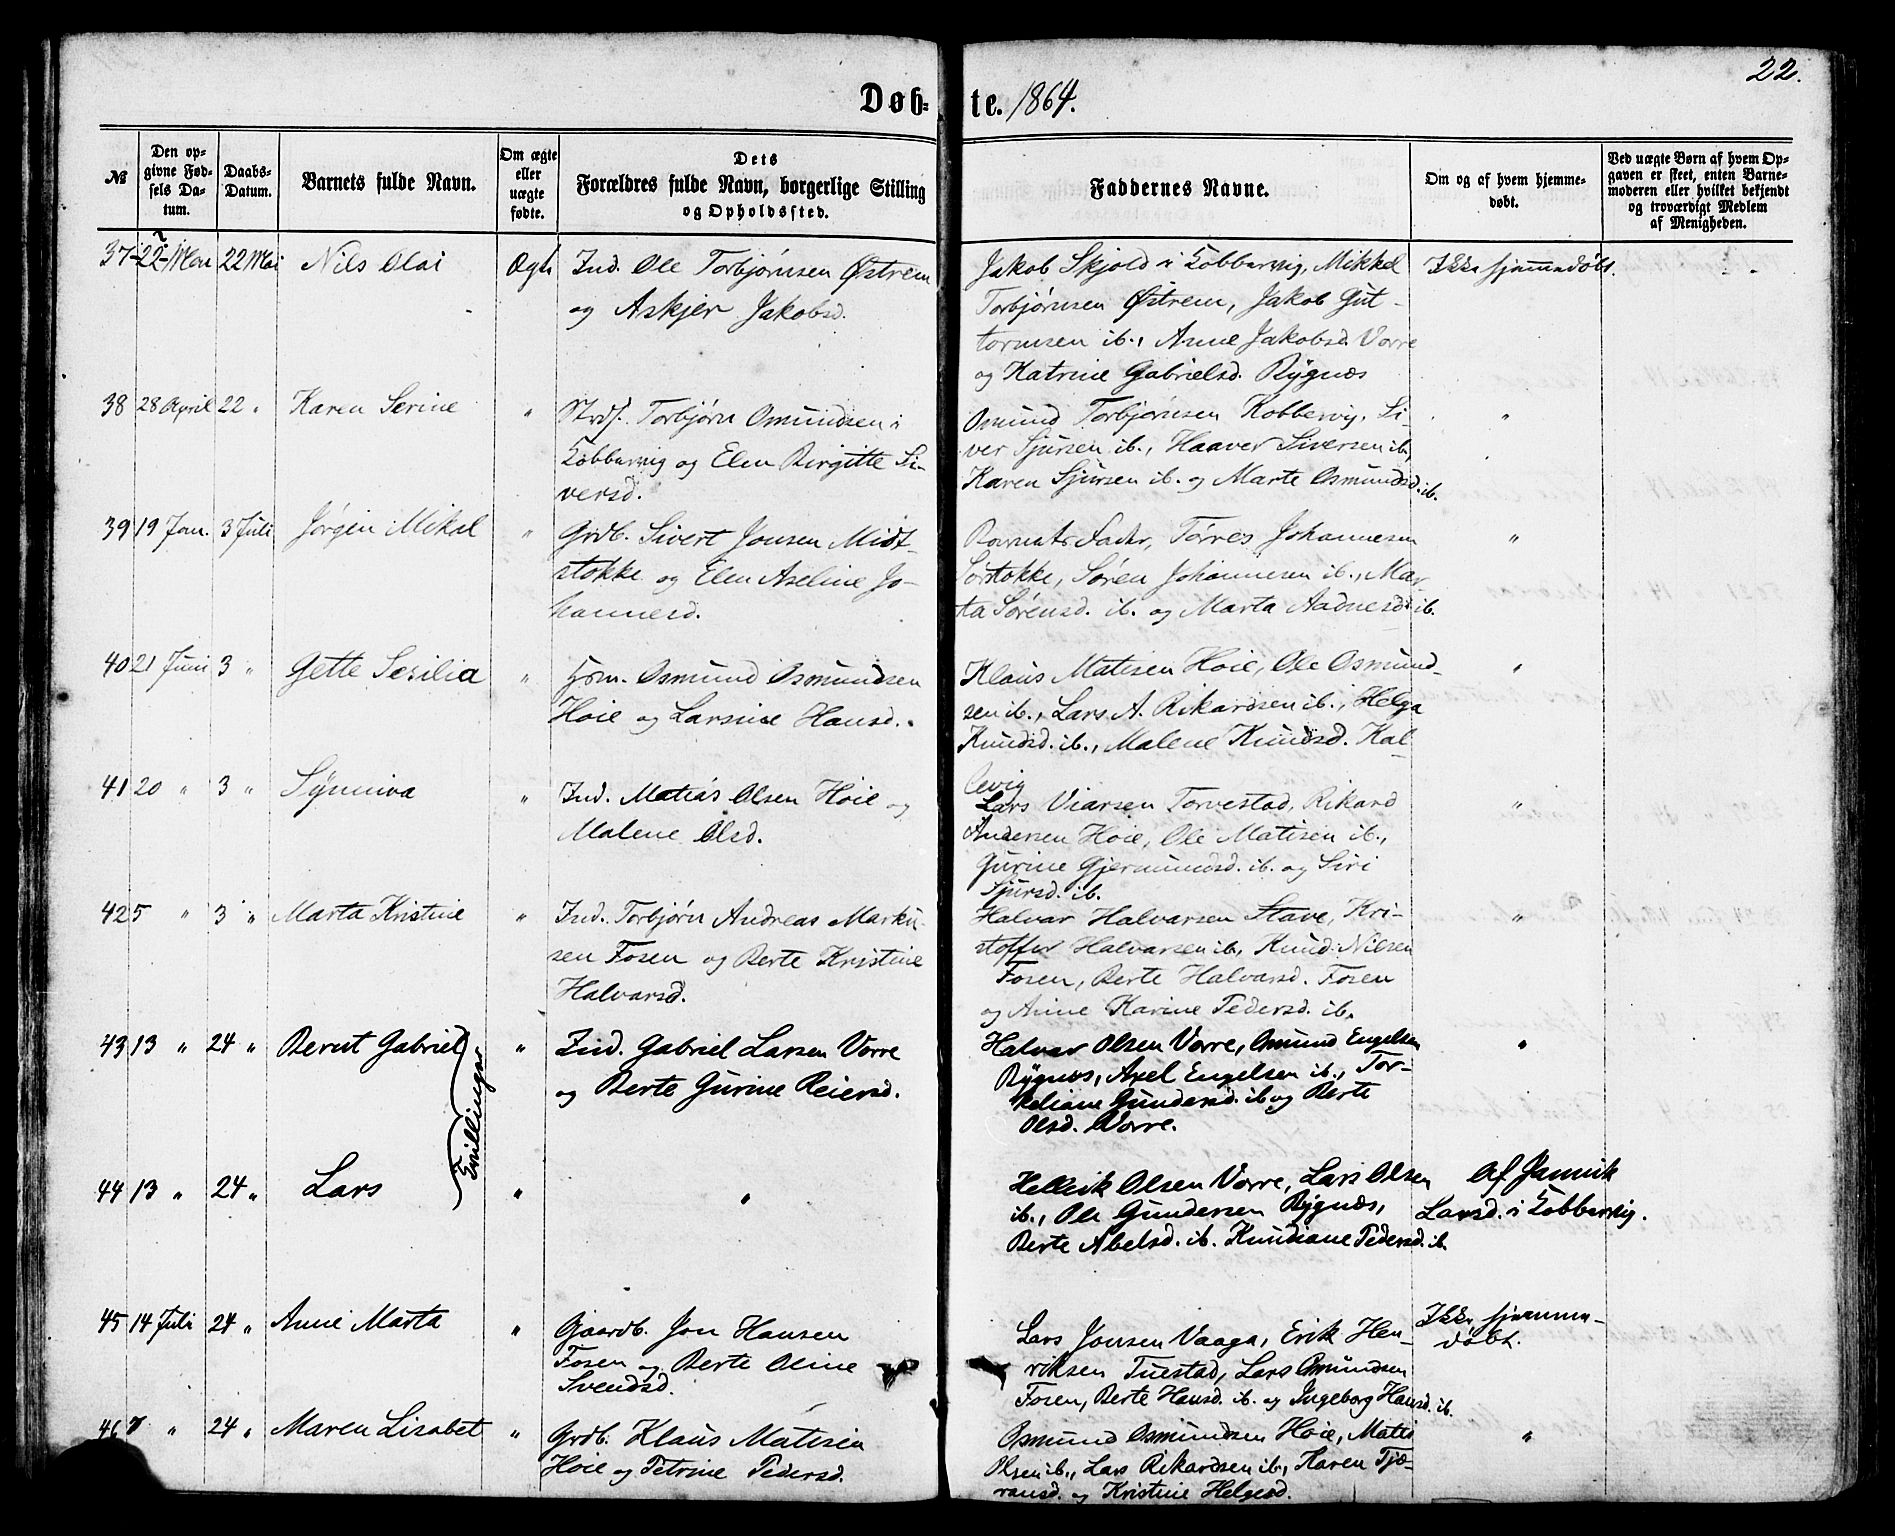 22.
Døb- te. 1864.
№ Den op-givne Fød-sels Da-tum. Daabs-Datum. Barnets fulde Navn. Om ægte eller uægte fødte. Dets Forældres fulde Navn, borgerlige Stilling og Opholdssted. Faddernes Navne. Om og af hvem hjemme-døbt. Ved uægte Børn af hvem Op-gaven er skeet, enten Barne-moderen eller hvilket bekjendt og troværdigt Medlem af Menigheden.
37 22 Mai 22 Mai Nils Olai Ægte Ind. Ole Torbjørnsen Østrem
og Askjer Jakobsd.
Jakob Skjold i Kobbervig, Mikkel
Torbjørnsen Østrem, Jakob Gut-
tormsen ib., Anne Jakobsd. Vorre
og Katrine Gabrielsd. Rygnæs
Ikke hjemmedøbt.
38 28 April 22 " Karen Serine " Strds. Torbjørn Osmundsen i
Kobbervig og Elen Birgitte Si-
versd.
Osmund Torbjørnsen Kobbervig, Si-
ver Sjursen ib., Haaver Siversen ib,
Karen Sjursen ib. og Marte Osmundsd. ib.
"
39 19 Jan. 3 Juli Jørgen Mikal " Grdb. Sivert Jonsen Midt-
stokke og Elen Aseline Jo-
hannesd.
Barnets Fader, Tørres Johannesen
Sørstokke, Søren Johannesen ib., Mar-
ta Sørensd. ib. og Marta Aadnesd. ib.
"
40 21 Juni 3 " Gette Sesilia " Hsm. Osmund Osmundsen
Hoie og Larsine Hansd.
Klaus Matisen Hoie, Ole Osmund-
sen ib., Lars A. Rikardsen ib., Helga
Knudsd. ib., Malene Knudsd. Kal-
levig
"
41 20 " 3 " Synniva " Ind. Matias Olsen Hoie og
Malene Olsd.
Lars Viarsen Torvestad, Rikard
Andersen Hoie, Ole Matisen ib.,
Gurine Gjermundsd. ib. og Siri
Sjursd. ib.
"
42 5 " 3 " Marta Kristine " Ind. Torbjørn Andreas Marku-
sen Fosen og Berte Kristine
Halvarsd.
Halvar Halvarsen Stave, Kri-
stoffer Halvarsen ib., Knud Nilsen
Fosen, Berte Halvarsd. Fosen
og Anne Karine Pedersd. ib.
"
43 13 " 24 " Bernt Gabriel " Ind. Gabriel Larsen Vorre
og Berte Gurine Reiersd.
Halvar Olsen Vorre, Osmund Engelsen
Rygnæs, Axel Engelsen ib., Tor-
keliane Gundersd. ib og Berte
Olsd. Vorre.
"
Tvillinger
44 13 " 24 " Lars " "
Helleik Olsen Vorre, Lars Olsen
ib., Ole Gundersen Rygnæs,
Berte Abelsd. ib. Knudiane Pedersd. ib
Af Jannik
Larsd. i Kobbervig.
45 14 Juli 24 " Anne Marta " Gaardb. Jon Hansen
Fosen og Berte Oline
Svendsd.
Lars Jonsen Vaaga, Erik Hen-
riksen Tuestad, Lars Osmundsen
Fosen, Berte Hansd. ib. og Ingeborg Hansd. ib.
Ikke hjemme-
døbt.
46 7 " 24 " Maren Lisabet " Grdb. Klaus Matisen
Hoie og Petrine Pedersd.
Osmund Osmundsen Hoie, Matis
Olsen ib., Lars Rikardsen ib., Karen Tjæ-
ransd. og Kristine Helgesd.
"